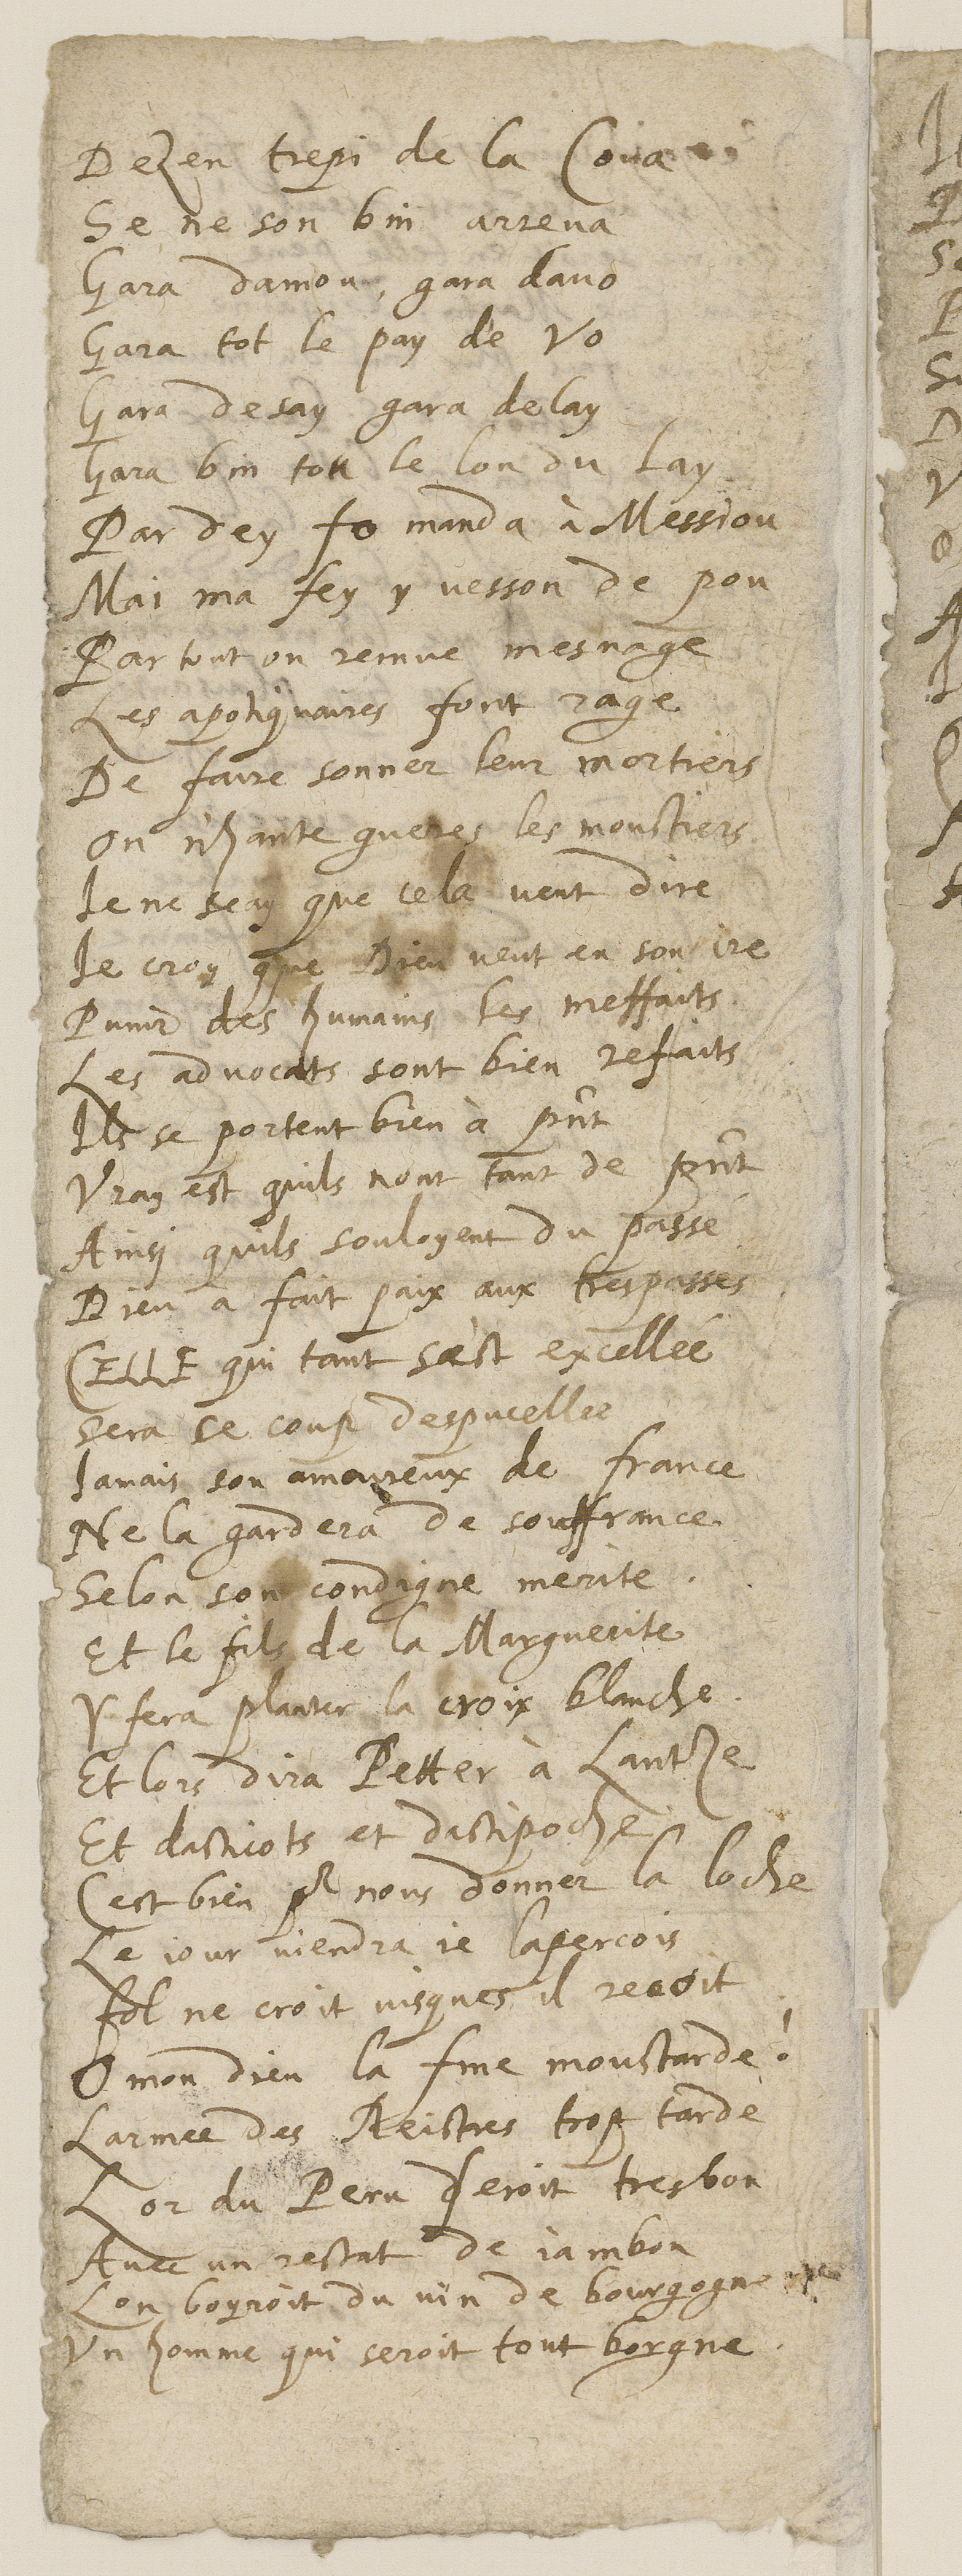 Dezen trepi de la Coua
Se ne son bin arreua
Gara damou, gara dauo
Gara tot le pay de Vo
Gara desay gara delay
Gara bin tou le lon du Lay
Par dey fo manda à Messiou
Mai ma fey y uesson de pou
Par tout on remue mesnage
Les apotiquaires font rage
De faire sonner leur mortiers
On n'hante gueres les moustiers
Ie ne scay que cela veut dire
Ie croy que Dieu veut en son ire
Punir des humains les meffaits
Les advocats sont bien refaits
Ils se portent bien à pñt
Vray est quils nont tant de pñt
Ainsi quils souloyent du passé
Dieu a fait paix aux trespassés
CELLE qui tant s'est excellée
Sera ce coup despucellee
Iamais son amoureux de france
Ne la gardera de souffrance
Selon son condigne merite.
Et le fils de la Marguerite
Y fera planter la croix blanche.
Et lors dira Petter à Lantze
Et dasticots et dastipoche
Cest bien pr nous donner la loche
Le iour uiendra ie lapercois
Fol ne croit iusques il recoit
O mon dieu la fine moustarde!
Larmee des Reistres trop tarde
Lor du Peru seroit tresbon
Auec un restat de iambon
Lon boyroit du uin de bourgogne
Vn homme qui seroit tout borgne.